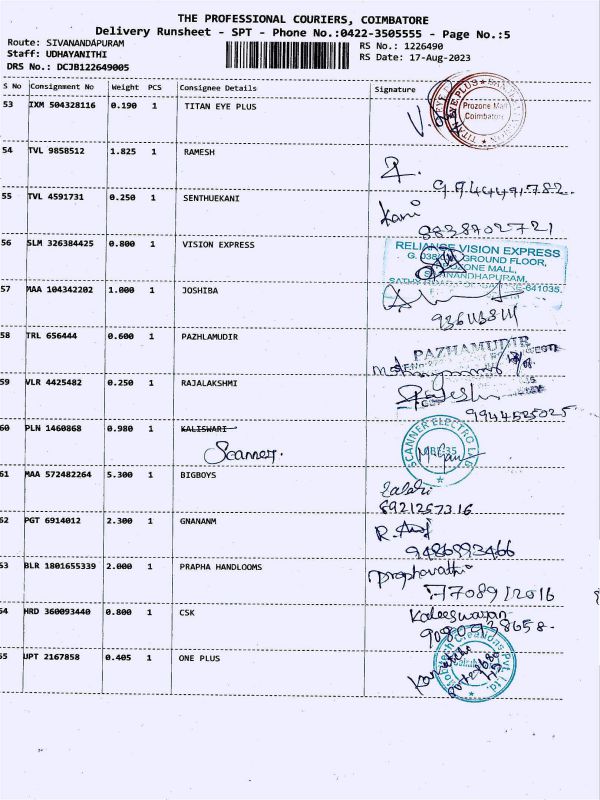 THE PROFESSIONAL COURIERS, COIMBATORE
Delivery Runsheet - SPT - Phone No.:0422-3505555 - Page No.:5
Route: SIVANANDAPURAM
Staff: UDHAYANITHI
DRS No.: DCJB122649005
RS No.: 1226490
RS Date: 17-Aug-2023
S No Consignment No Weight PCS Consignee Details Signature
53 IXM 504328116 0.190 1 TITAN EYE PLUS
Prozone Mall
Coimbatore
54 TVL 9858512 1.825 1 RAMESH
9944491782.
55 TVL 4591731 0.250 1 SENTHUEKANI
Kani
8838702721
56 SLM 326384425 0.800 1 VISION EXPRESS
RELIANCE VISION EXPRESS
GROUND FLOOR,
PROZONE MALL,
SIVANANDHAPURAM,
641035.
57 MAA 104342202 1.000 1 JOSHIBA
58 TRL 656444 0.600 1 PAZHLAMUDIR
PAZHAMUDIR
59 VLR 4425482 0.250 1 RAJALAKSHMI
9944525025
60 PLN 1460868 0.980 1 KALISWARI
Scanner.
SCANNER ELECTRO
61 MAA 572482264 5.300 1 BIGBOYS
8921267316
62 PGT 6914012 2.300 1 GNANANM
9486993466
63 BLR 1801655339 2.000 1 PRAPHA HANDLOOMS
Praphavathi
64 HRD 360093440 0.800 1 CSK
Kaleeswaran
9080938658.
65 JPT 2167858 0.405 1 ONE PLUS